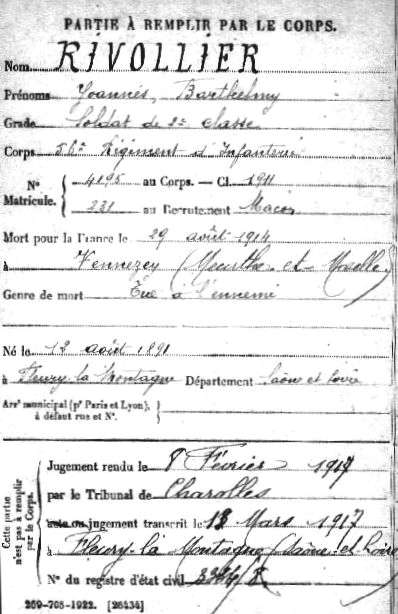 PARTIE À REMPLIR PAR LE CORPS.
Nom RIVOLLIER
Prénoms Joannès, Barthelmy
Grade Soldat de 2e classe
Corps 56e Régiment d'Infanterie
N° Matricule. { 4195 au Corps. — Cl. 1911
231 au Recrutement Macon
Mort pour la France le 29 août 1914
à Vennezey (Meurthe-et-Moselle)
Genre de mort Tué à l'ennemi
Né le 12 août 1891
à Fleury-la-Montagne Département Saône et Loire
Arrt municipal (pr Paris et Lyon), à défaut rue et N°.
Cette partie n'est pas à remplir par le Corps.
Jugement rendu le 8 Février 1917
par le Tribunal de Charolles
acte ou jugement transcrit le 13 Mars 1917
à Fleury-la Montagne (Saône-et-Loire
N° du registre d'état civil
269-708-1922. [26434]